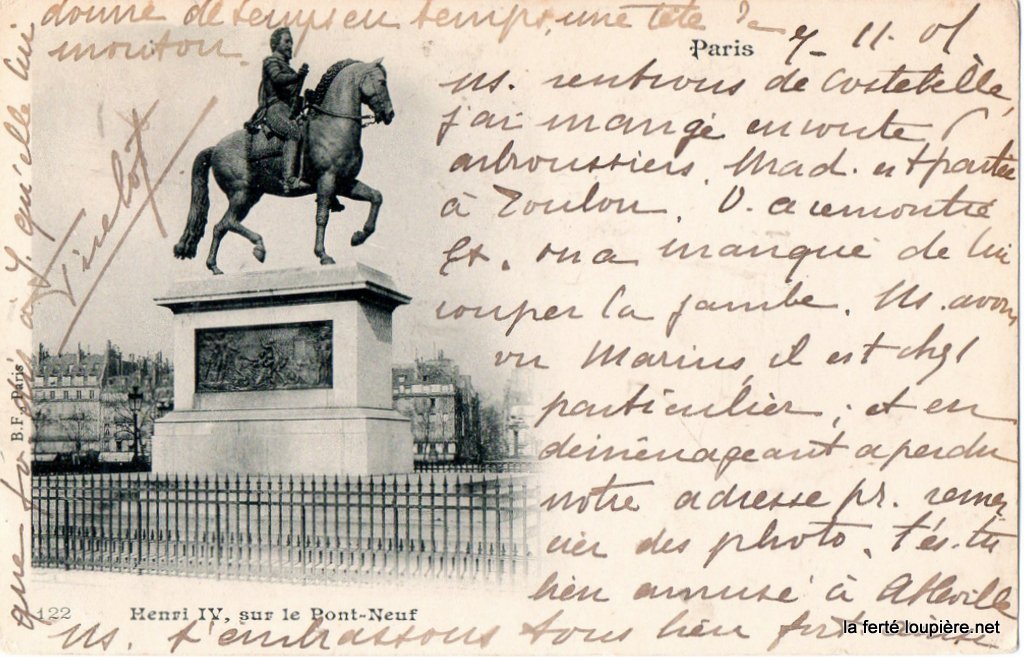 Paris
7- 11. 01
ns. rentrons de Costebelle,
j'ai mangé en route 6
arboussiers. Mad. est partie
à Toulon. V. a remontré
on a manqué de lui
couper la jambe. Ns. avons
vu Marius, il est chez
particulier, et en
déménageant a perdu
notre adresse pr. remer
cier des photo. t'es-tu
bien amusé à Abbeville
Ns. t'embrassons tous bien fort
que dis à J. qu'elle lui
donne de temps en temps, une tête de
mouton.
B.F., Paris
122 Henri IV, sur le Pont-Neuf
la ferté loupière.net